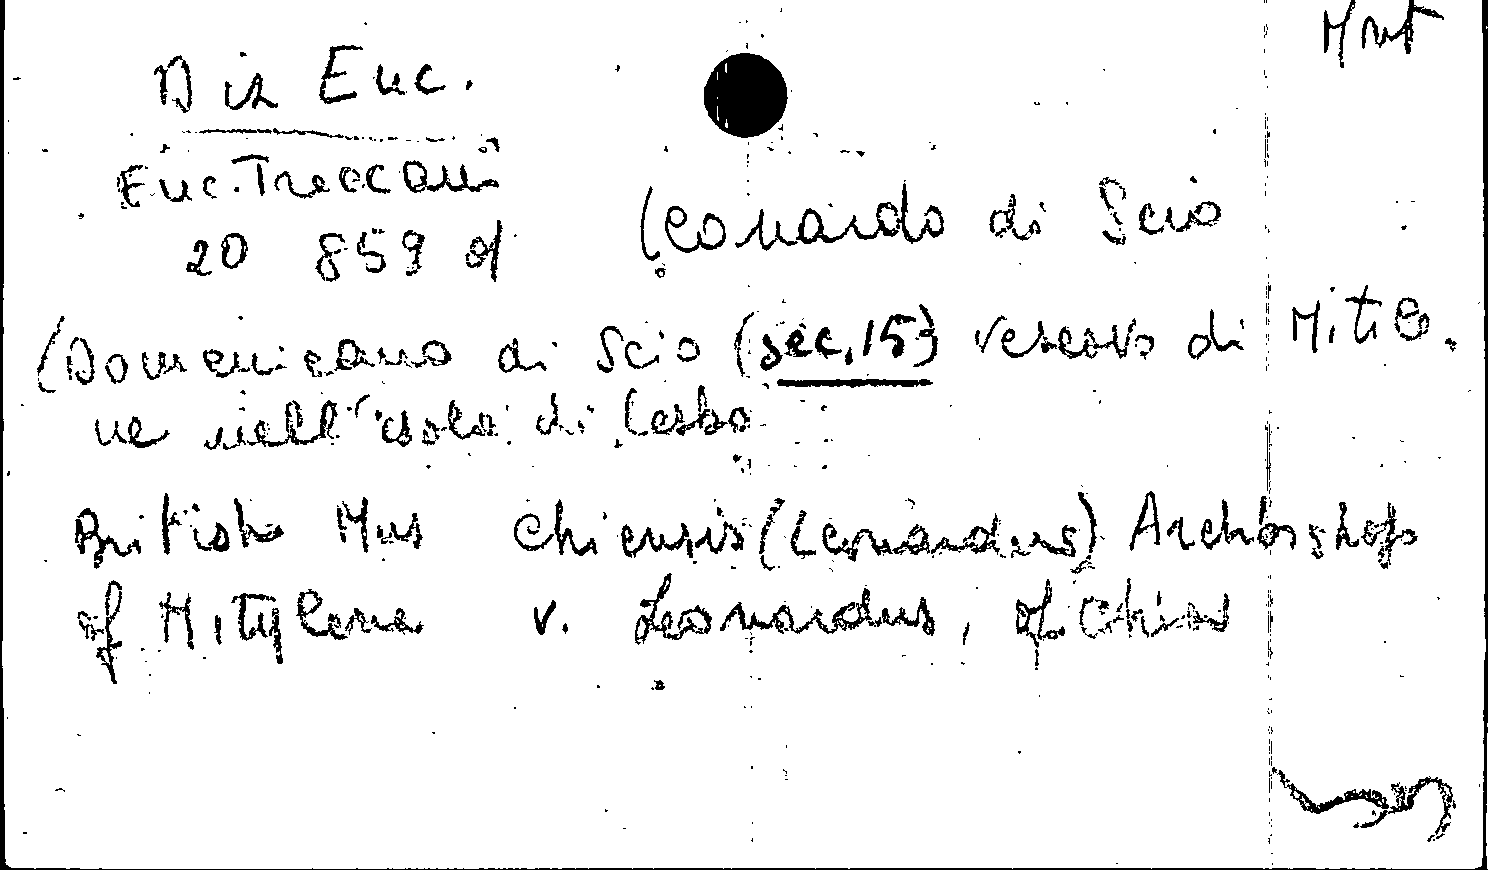 Diz Enc.
Enc. Treccani
20 859 d
Leonardo di Scio
(Domenicano di Scio (sec. 15) vescovo di Mitile-
ne nell'isola di Lesbo
British Mus Chiensis (Leonardus) Archbishop
of Mitylene v. Leonardus, of Chios